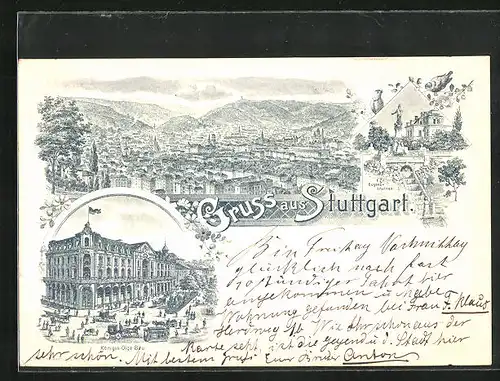 Gruss aus Stuttgart.
Eugens-
platte
Königin Olga-Bau
Bin Freitag Nachmittag
glücklich nach fast
stündiger Fahrt hier
angekommen u. habe
Wohnung gefunden bei Frau F. Klaus
Herdweg Wie Ihr schon aus der
Karte seht, ist die Gegend u. d. Stadt hier
sehr schön. Mit bestem Gruß Euer Anton